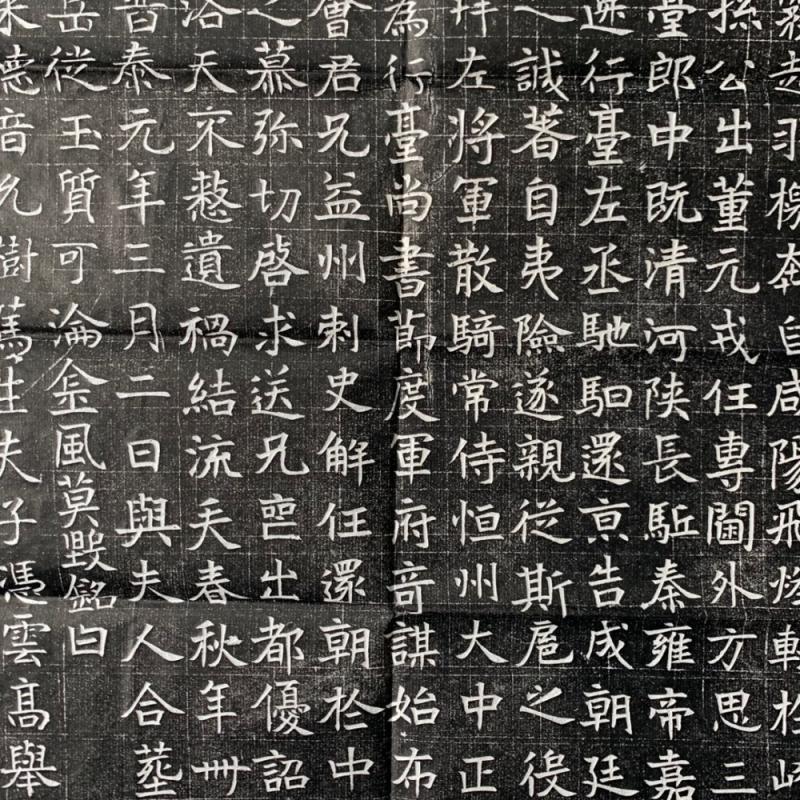 走羽楊奔自咸陽飛燧軫於崎
孫公出董元戎任專閫外方思三
臺郎中既清河陝長駈秦雍帝嘉
行臺左丞馳駟還京告成朝廷
之誠著自夷險遂親從斯扈之役
拜左將軍散騎常侍恒州大中正
為行臺尚書節度軍府竒謀始布
會君兄益州刺史解任還朝於中
之慕弥切啓求送兄喪出都優詔
洛天不憗遺禍結流矢春秋年卅
普泰元年三月二日與夫人合葬
岳從玉質可淪金風莫毀銘曰
德音允樹篤生夫子憑雲高舉